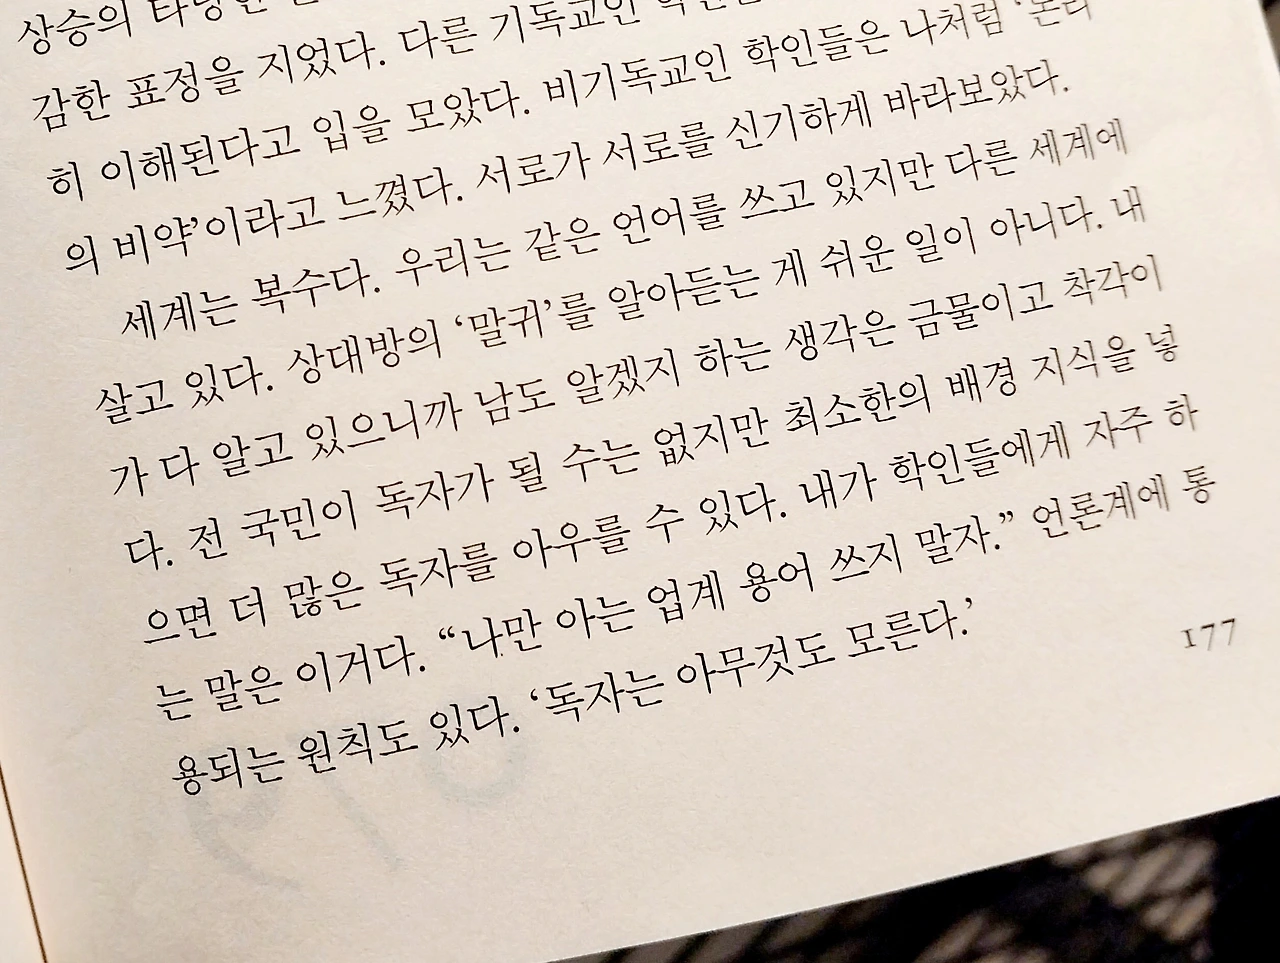 상승의
감한 표정을 지었다. 다른 기독교인
히 이해된다고 입을 모았다. 비기독교인 학인들은 나처럼 ‘논리
의 비약’이라고 느꼈다. 서로가 서로를 신기하게 바라보았다.
세계는 복수다. 우리는 같은 언어를 쓰고 있지만 다른 세계에
살고 있다. 상대방의 ‘말귀’를 알아듣는 게 쉬운 일이 아니다. 내
가 다 알고 있으니까 남도 알겠지 하는 생각은 금물이고 착각이
다. 전 국민이 독자가 될 수는 없지만 최소한의 배경 지식을 넣
으면 더 많은 독자를 아우를 수 있다. 내가 학인들에게 자주 하
는 말은 이거다. “나만 아는 업계 용어 쓰지 말자.” 언론계에 통
용되는 원칙도 있다. ‘독자는 아무것도 모른다.’
177